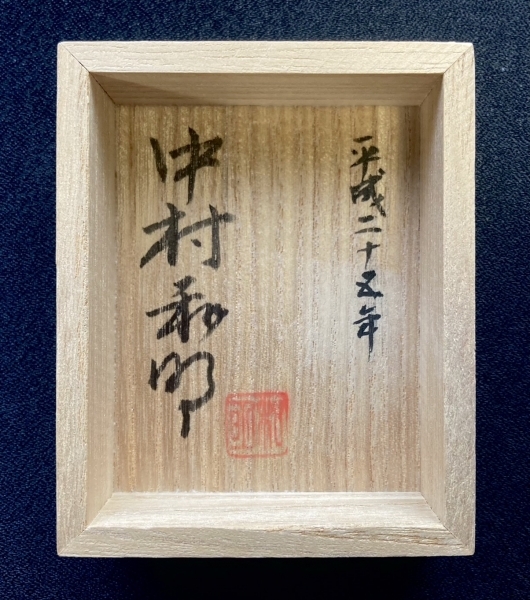 平成二十五年
中村和明